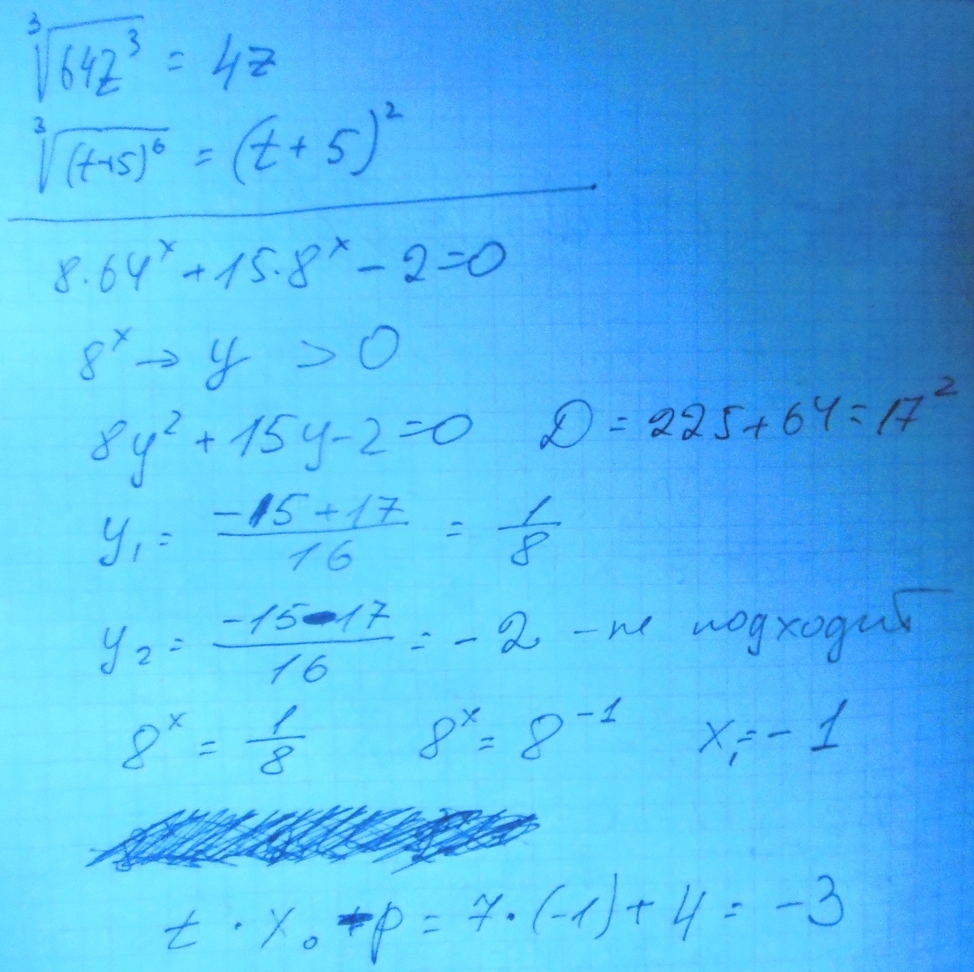 ∛64z³ = 4z
∛(t+5)⁶ = (t+5)²
8·64ˣ + 15·8ˣ - 2 = 0
8ˣ → y > 0
8y² + 15y - 2 = 0 D = 225 + 64 = 17²
y₁ = (-15 + 17)/16 = 1/8
y₂ = (-15 - 17)/16 = -2 - не подходит
8ˣ = 1/8 8ˣ = 8⁻¹ x₁ = -1
t · x₀ + p = 7 · (-1) + 4 = -3